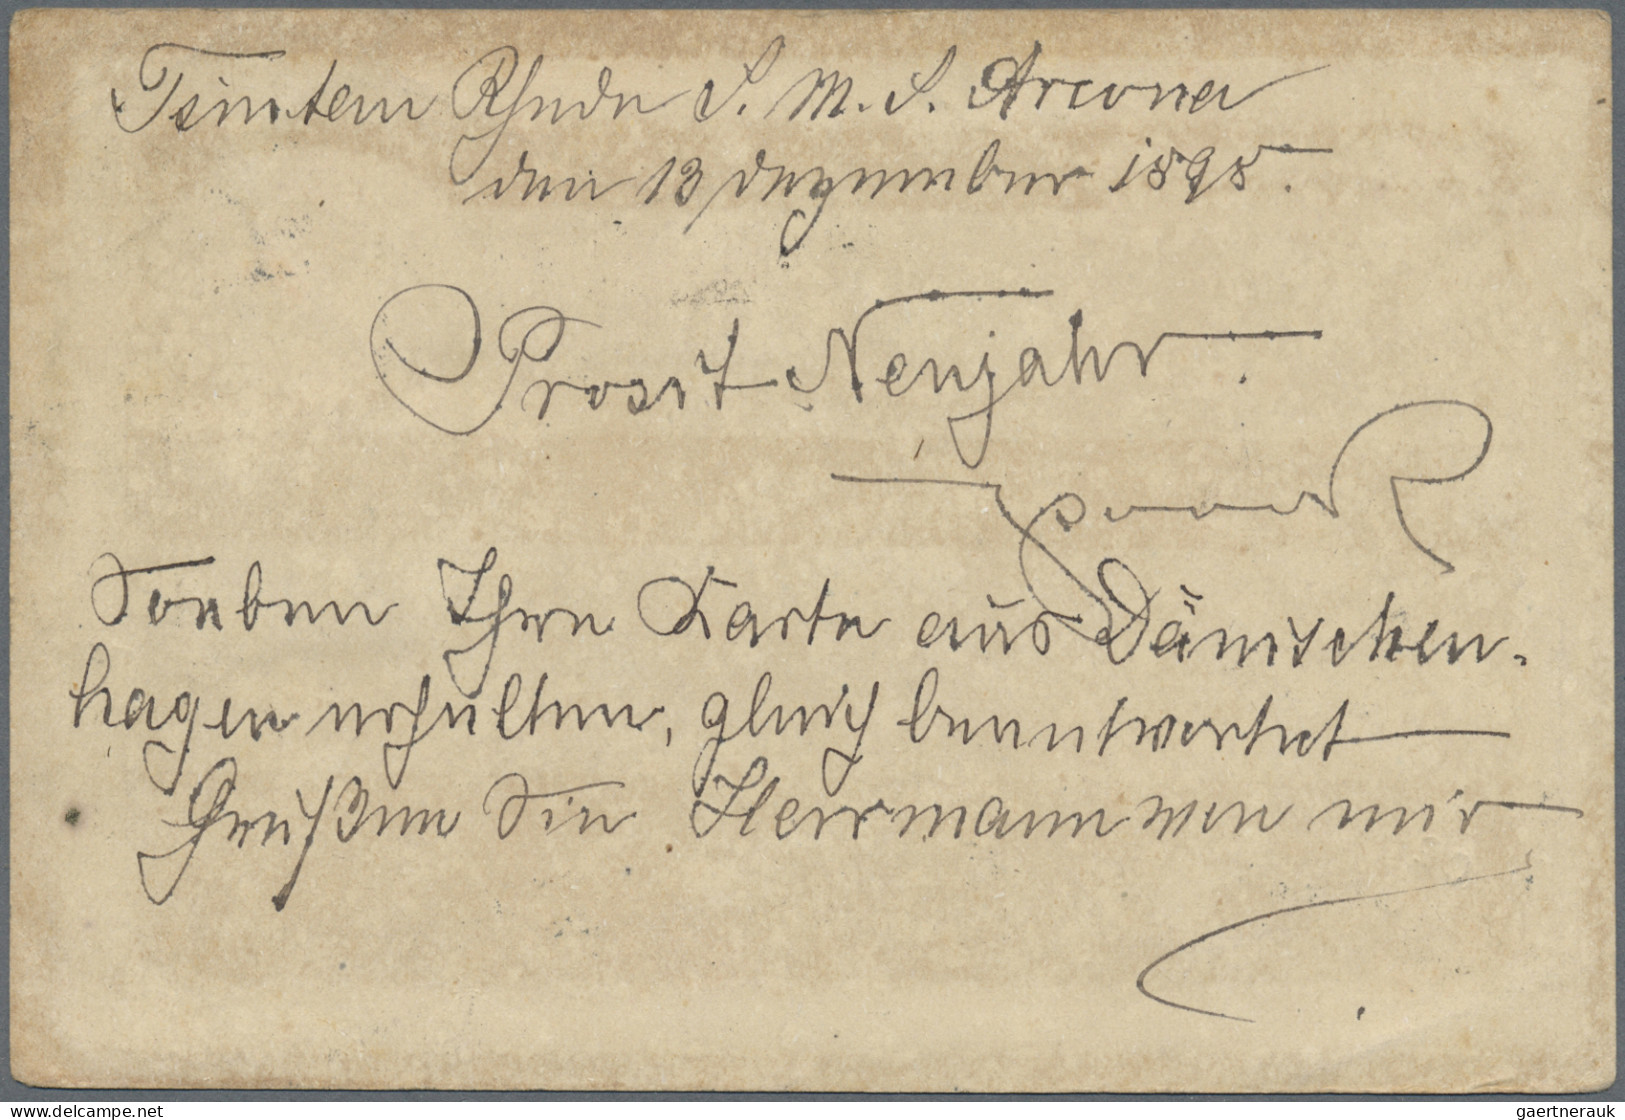 Tsintau Rhede S. M. S. Arcona
den 13 Dezember 1898.
Prosit Neujahr.
Soeben Ihre Karte aus Dänischen-
hagen erhalten, gleich beantwortet
Grüßen Sie Herrmann von mir
delcampe.net
gaertnerauk